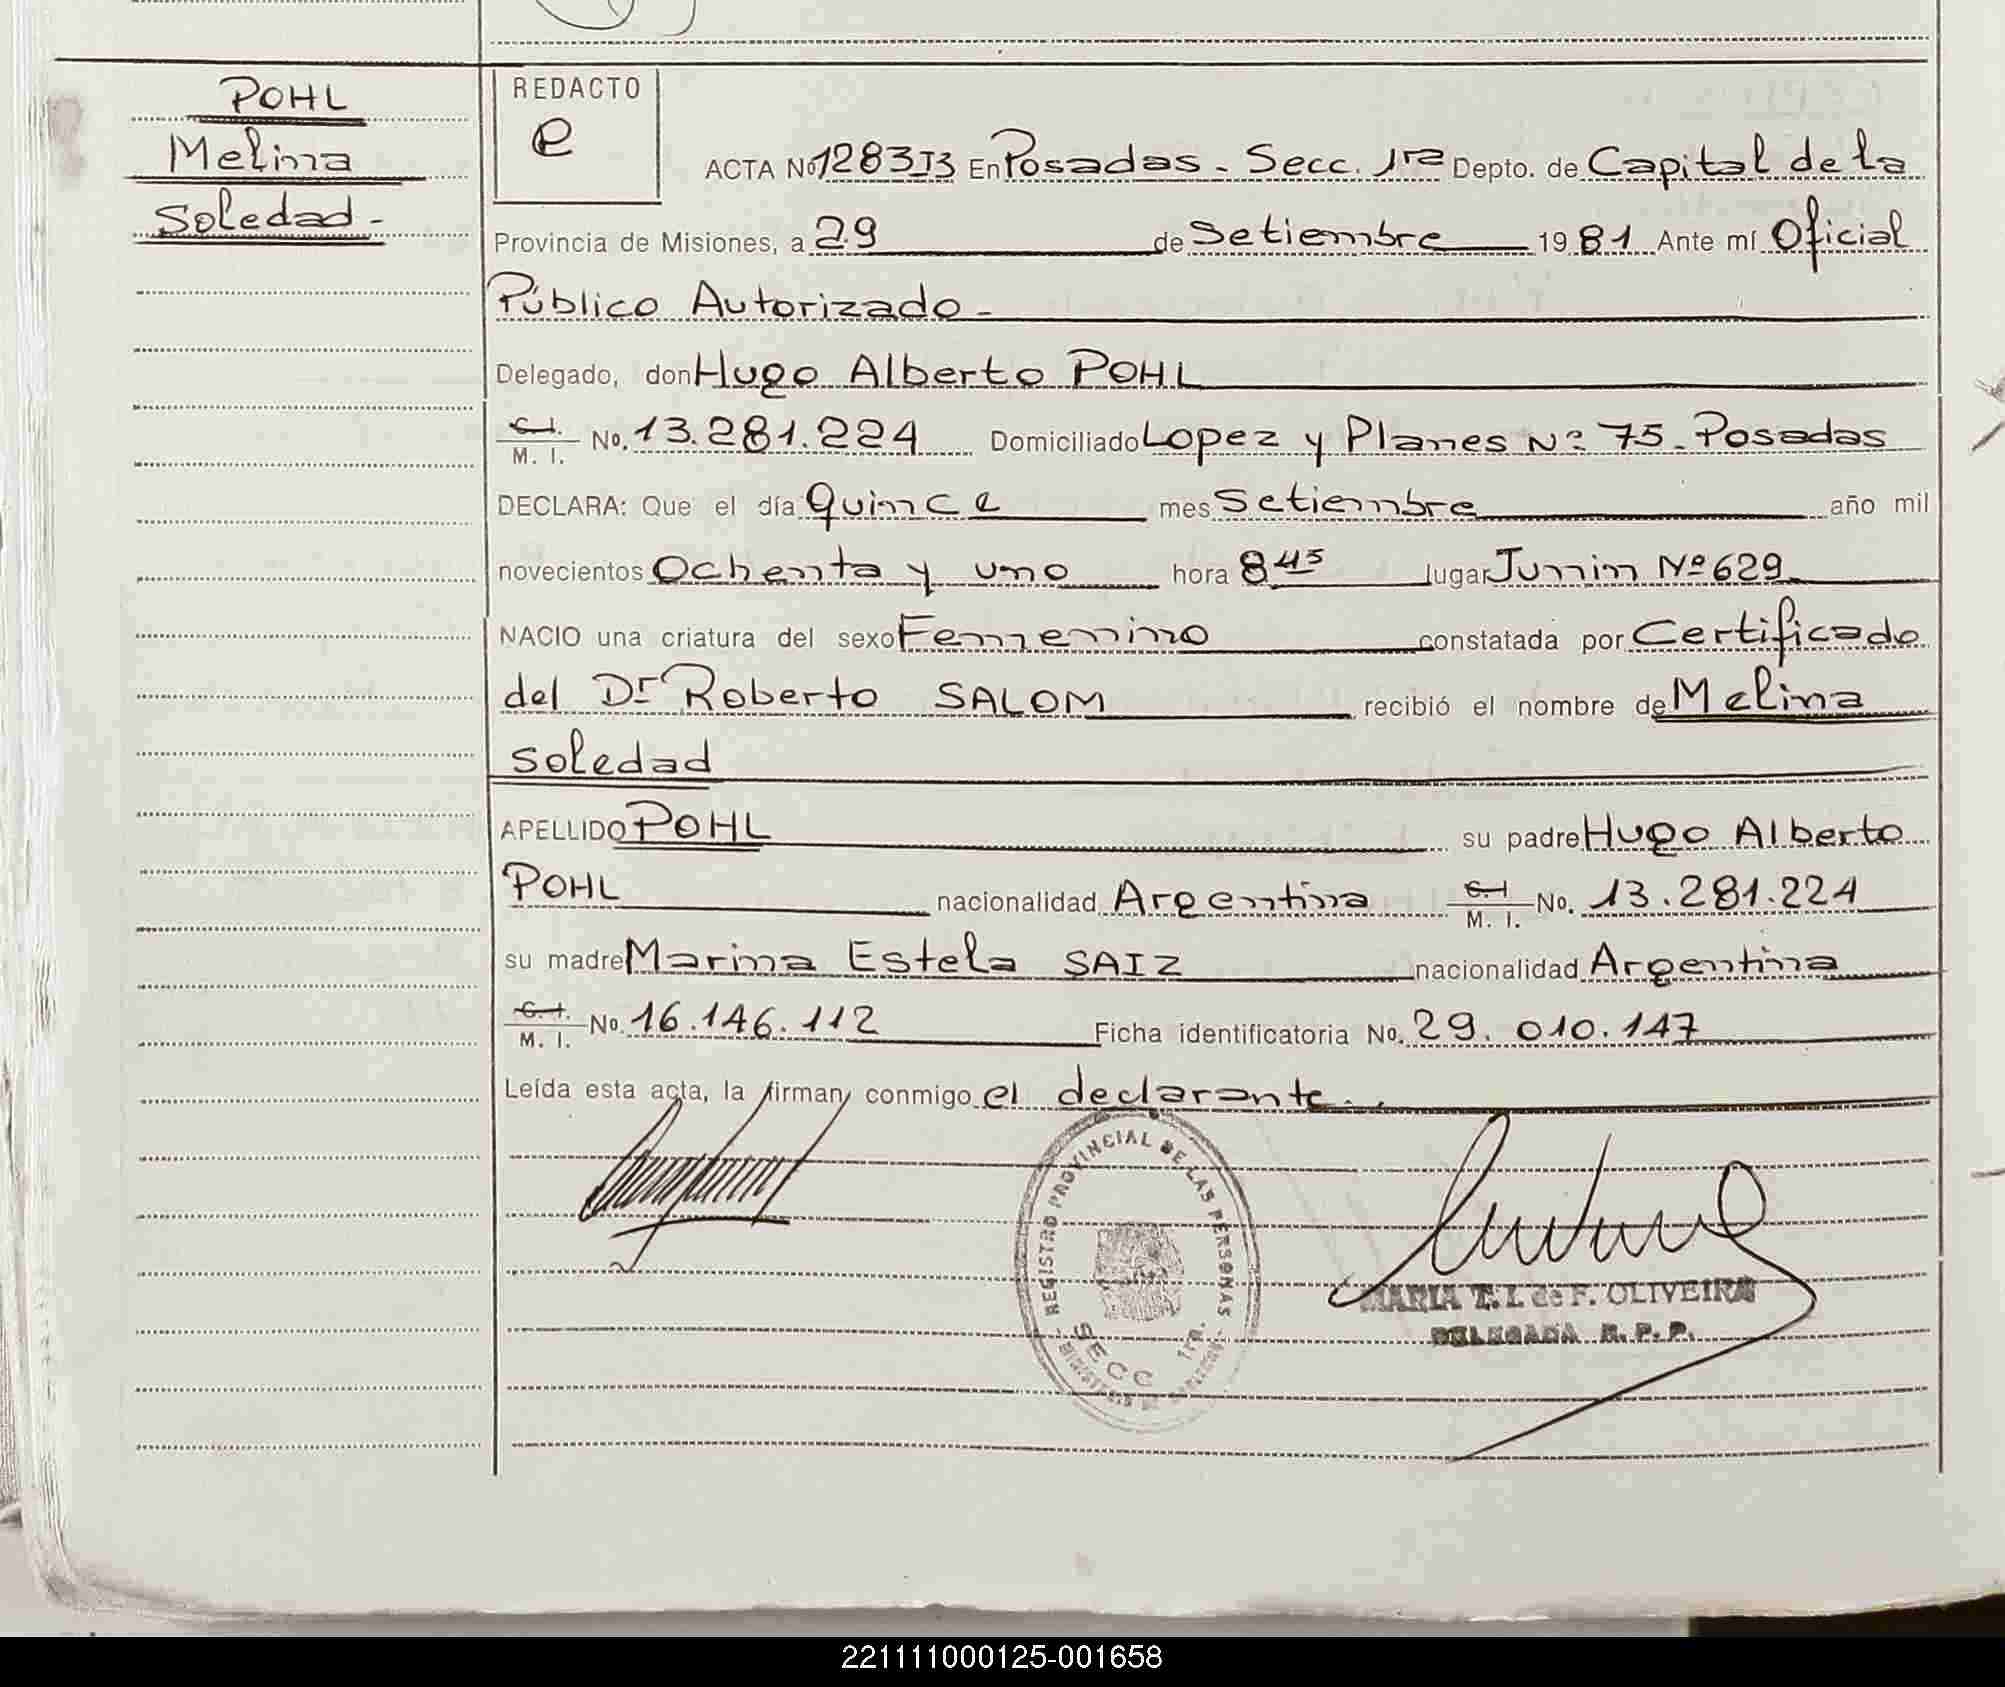 POHL
Melina
Soledad -
REDACTO
e
ACTA No 1283 T3 En Posadas - Secc. 1ra Depto. de Capital de la
Provincia de Misiones, a 29 de Setiembre 1981 Ante mí Oficial
Público Autorizado -
Delegado, don Hugo Alberto POHL
C.I. M. I. No. 13.281.224 Domiciliado Lopez y Planes Nº 75 - Posadas
DECLARA: Que el día Quince mes Setiembre año mil
novecientos Ochenta y uno hora 8 45 lugar Junin Nº 629
NACIO una criatura del sexo Femenino constatada por Certificado
del Dr Roberto SALOM recibió el nombre de Melina
Soledad
APELLIDO POHL su padre Hugo Alberto
POHL nacionalidad Argentina C.I M. I. No. 13.281.224
su madre Marina Estela SAIZ nacionalidad Argentina
C.I. M. I. No. 16.146.112 Ficha identificatoria No. 29.010.147
Leída esta acta, la firman conmigo el declarante.
REGISTRO PROVINCIAL DE LAS PERSONAS
SECC 1ra.
MARIA T. I. de F. OLIVEIRA
DELEGADA R. P. P.
221111000125-001658